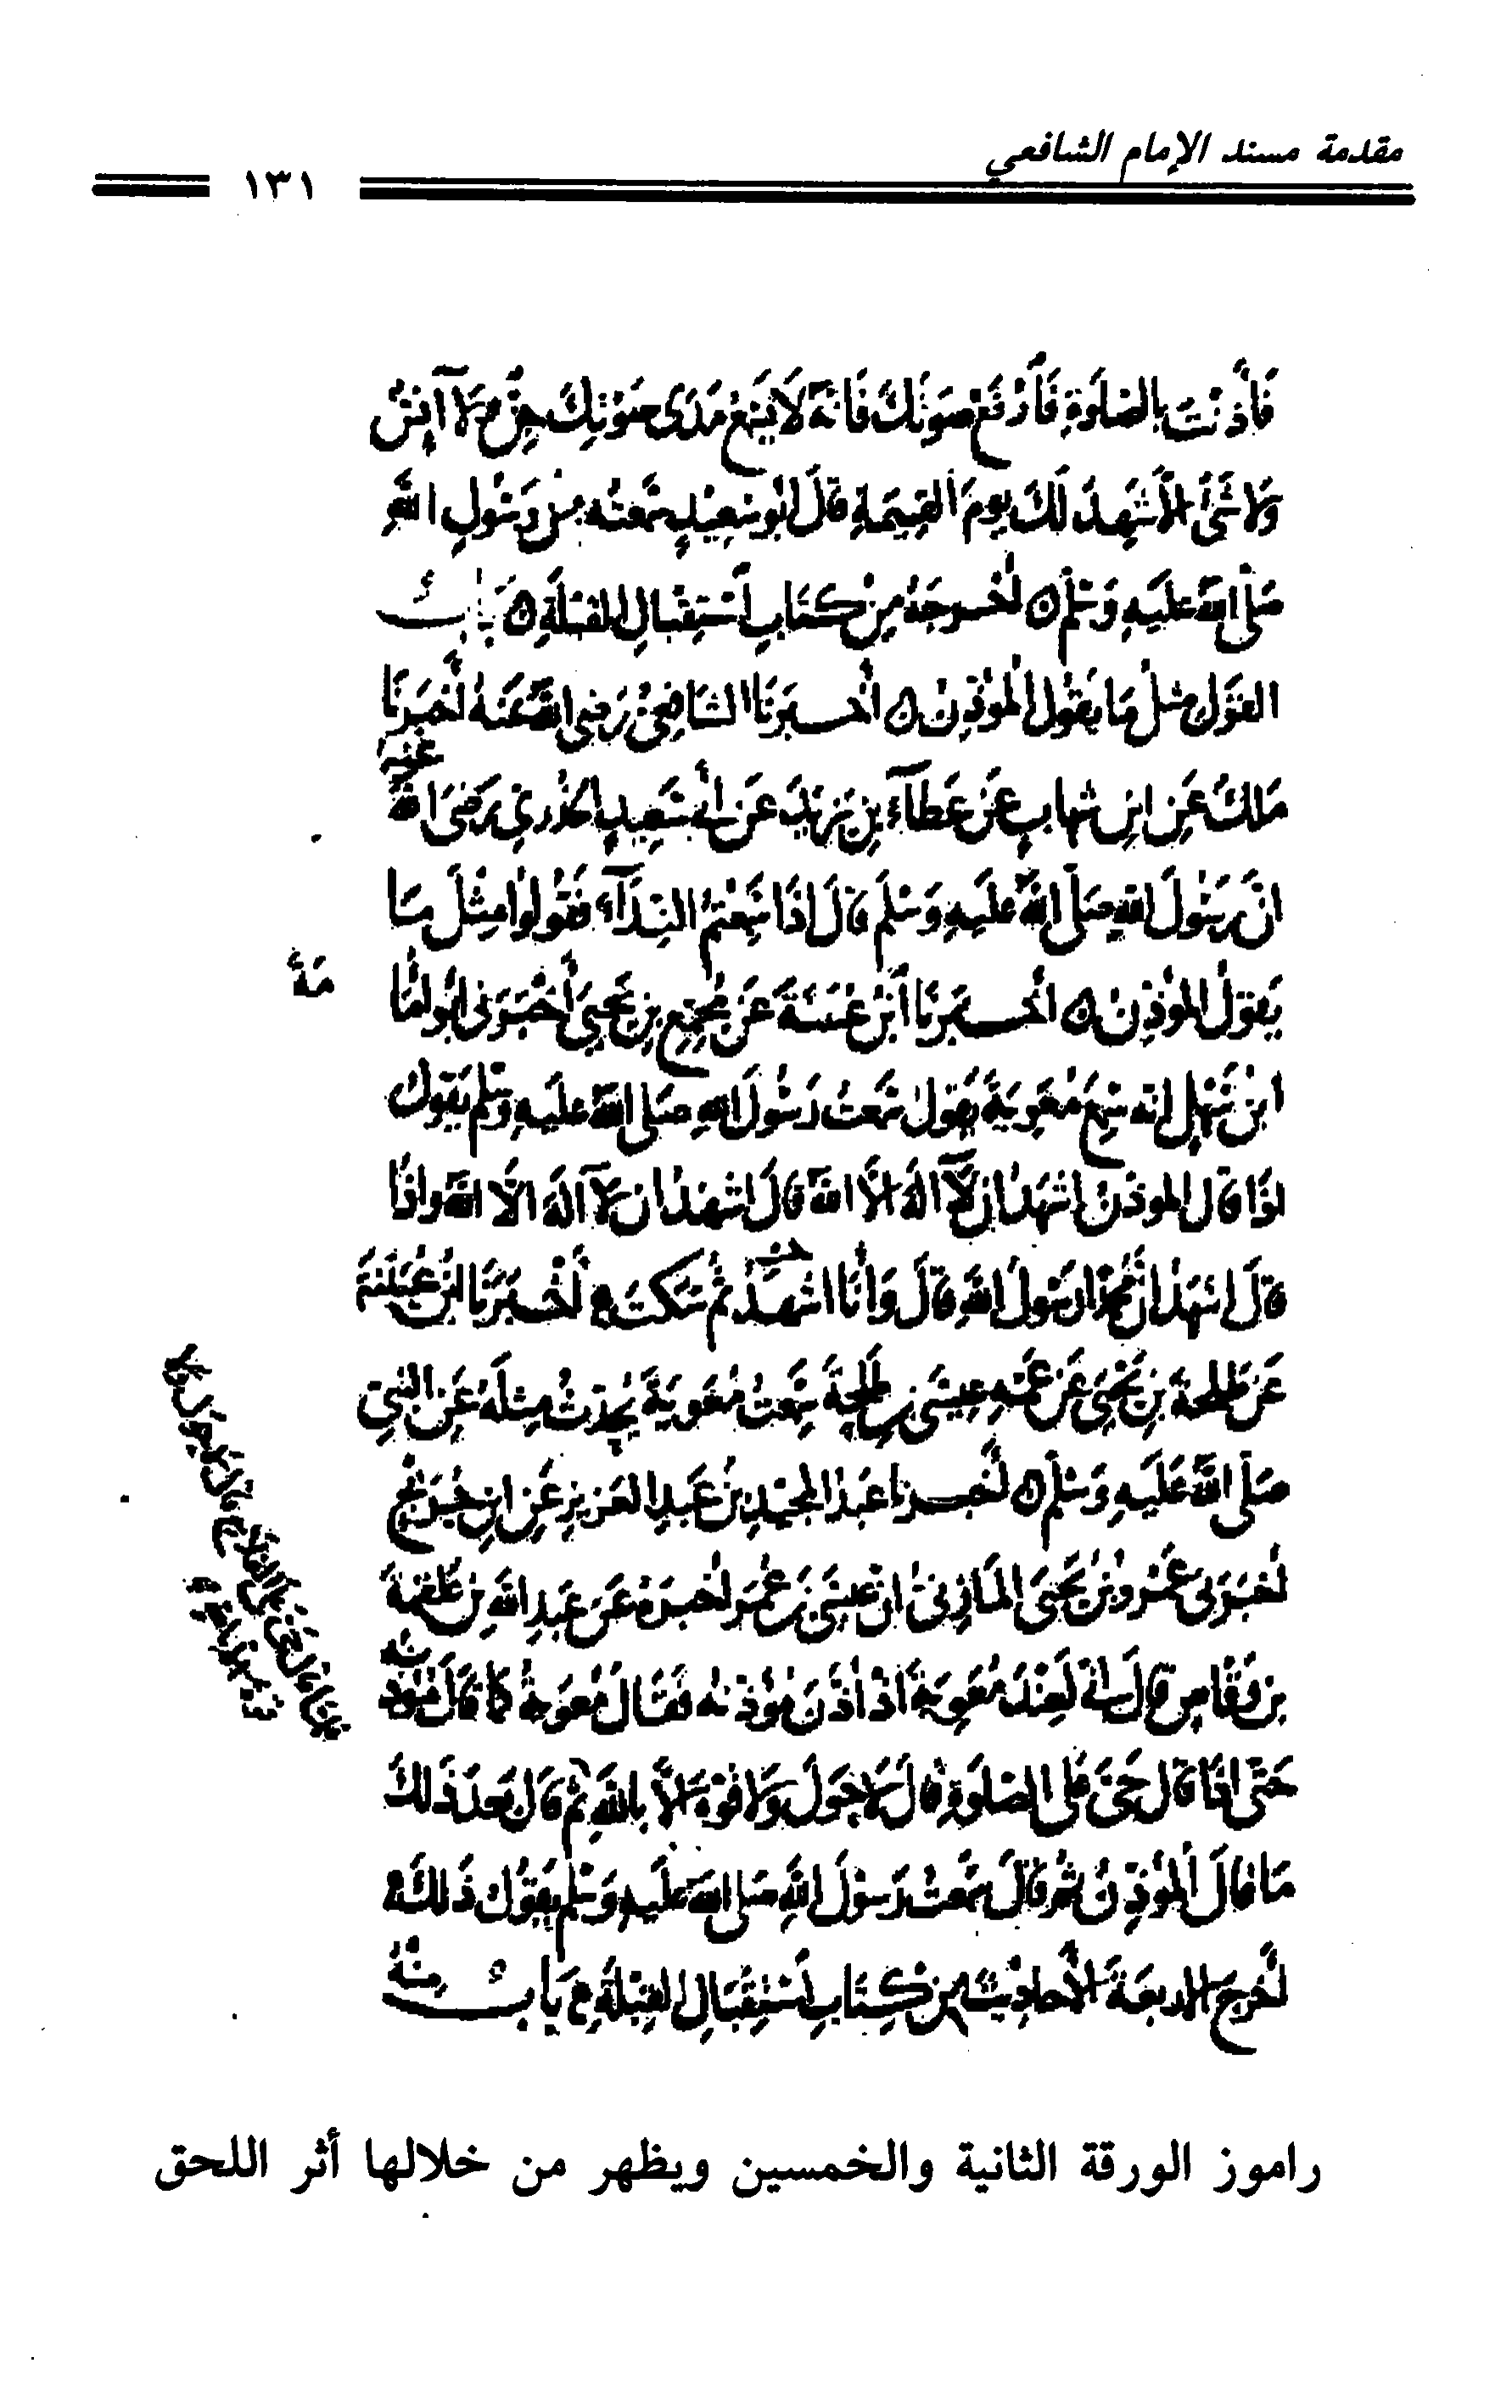 مقدمة مسند الإمام الشافعي
١٣١
فَأَذَّنْتَ بالصَلَوةِ فَأَرْفَعْ صَوتَكَ فَانهُ لَا يَسْمَعُ مَدَى صَوْتِكَ جِنٌّ وَلَا آنِسٌ
وَلا شَىٌ الَّا شَهِدَ لَكَ يومَ القِيمَةِ قَالَ ابُو سَعِيْدٍ سَمِعْتُه مِنْ رَسُولِ اللهِ
صَلى اللهُ عَليَهِ وَسَلم ۝ اخرجَهُ مِنْ كتَابِ اسْتِقبَالِ القبْلَةِ ۝ بَابُ
القَول مثل مَا يَقولُ المُوذِنُ ۝ اخبَرنَا الشَافِعىُ رَضِى اللهُ عَنهُ اخبَرنَا
مَالكٌ عَنِ ابنِ شهابٍ عَن عَطآءِ بنِ يَزيدَ عَن ابى سَعِيدٍ الخُدرِي رَضىَ الله
عنه
انَّ رَسُولَ اللهِ صَلى اللهُ عليَهِ وَسَلمَ قَالَ اذَا سَمِعْتمُ النِدَآءَ فقُولُوا مِثْلَ مَا
يَقولُ المؤذِنُ ۝ اخبَرنَا ابنُ عُيَينَةَ عَن مُجمّعِ بنِ يَحيىَ أخْبَرَنى ابُو امَا
مَةَ
ابنُ سَهْلٍ انه سَمِعَ مُعَوِيَةَ يَقولُ سَمعتُ رَسُولَ اللهِ صَلى اللهُ عليَهِ وسَلم يَقول
اذَا قال الموذنُ اشهَدُ ان لَا الهَ الَّا اللهُ قَالَ اشهَدُ ان لآ الَهَ الَّا اللهُ واذَا
قَالَ اشهَدُ انَّ مُحمدًا رَسُولُ اللهِ قَالَ وَانَا اشهَدُ ثمُ سَكتَ اخْبَرَنَا ابنُ عُيَينَةَ
عَن طَلحةَ بنِ يَحيىَ عَن عَمّهِ عِيسَى بنِ طَلحةَ سَمِعتُ مُعَوِيَةَ يُحدِثُ مِثلَهُ عَنِ النَبىِ
صَلى اللهُ عَلَيهِ وَسَلم ۝ اخبرنا عَبدُ المَجيْدِ بنُ عَبدِ العَزيزِ عَنِ ابنِ جُرَيجٍ
اخبَرَنى عَمْرُو بنُ يَحيىَ المَازِنىُ انَّ عيسَى بنَ عُمَر اخبرَهُ عَن عَبدِ اللهِ بنِ عَلقمَةَ
بن وقَّاصٍ قَالَ انى لَعِندَ مُعَوِيَةَ اذ اذَّنَ مُؤذنهُ فقَالَ مُعَوِيَةُ كمَا قَالَ مُؤذنه
حَتَّى اذَا قَالَ حَىَّ عَلى الصَلَوةِ قالَ لَا حَولَ وَلا قوّةَ الَّا باللهِ ثمُ قَالَ بَعدَ ذَلكَ
مَا قَالَ المُؤذِنُ ثمُ قَالَ سَمعتُ رَسُولَ اللهِ صَلى اللهُ عَليَهِ وَسَلم يَقُولُ ذَلكَ
اخرجَ الاربعَةَ الأحاديثَ مِن كِتَابِ اسْتِقبَالِ القِبلَةِ بَابٌ مِنهُ
راموز الورقة الثانية والخمسين ويظهر من خلالها أثر اللحق